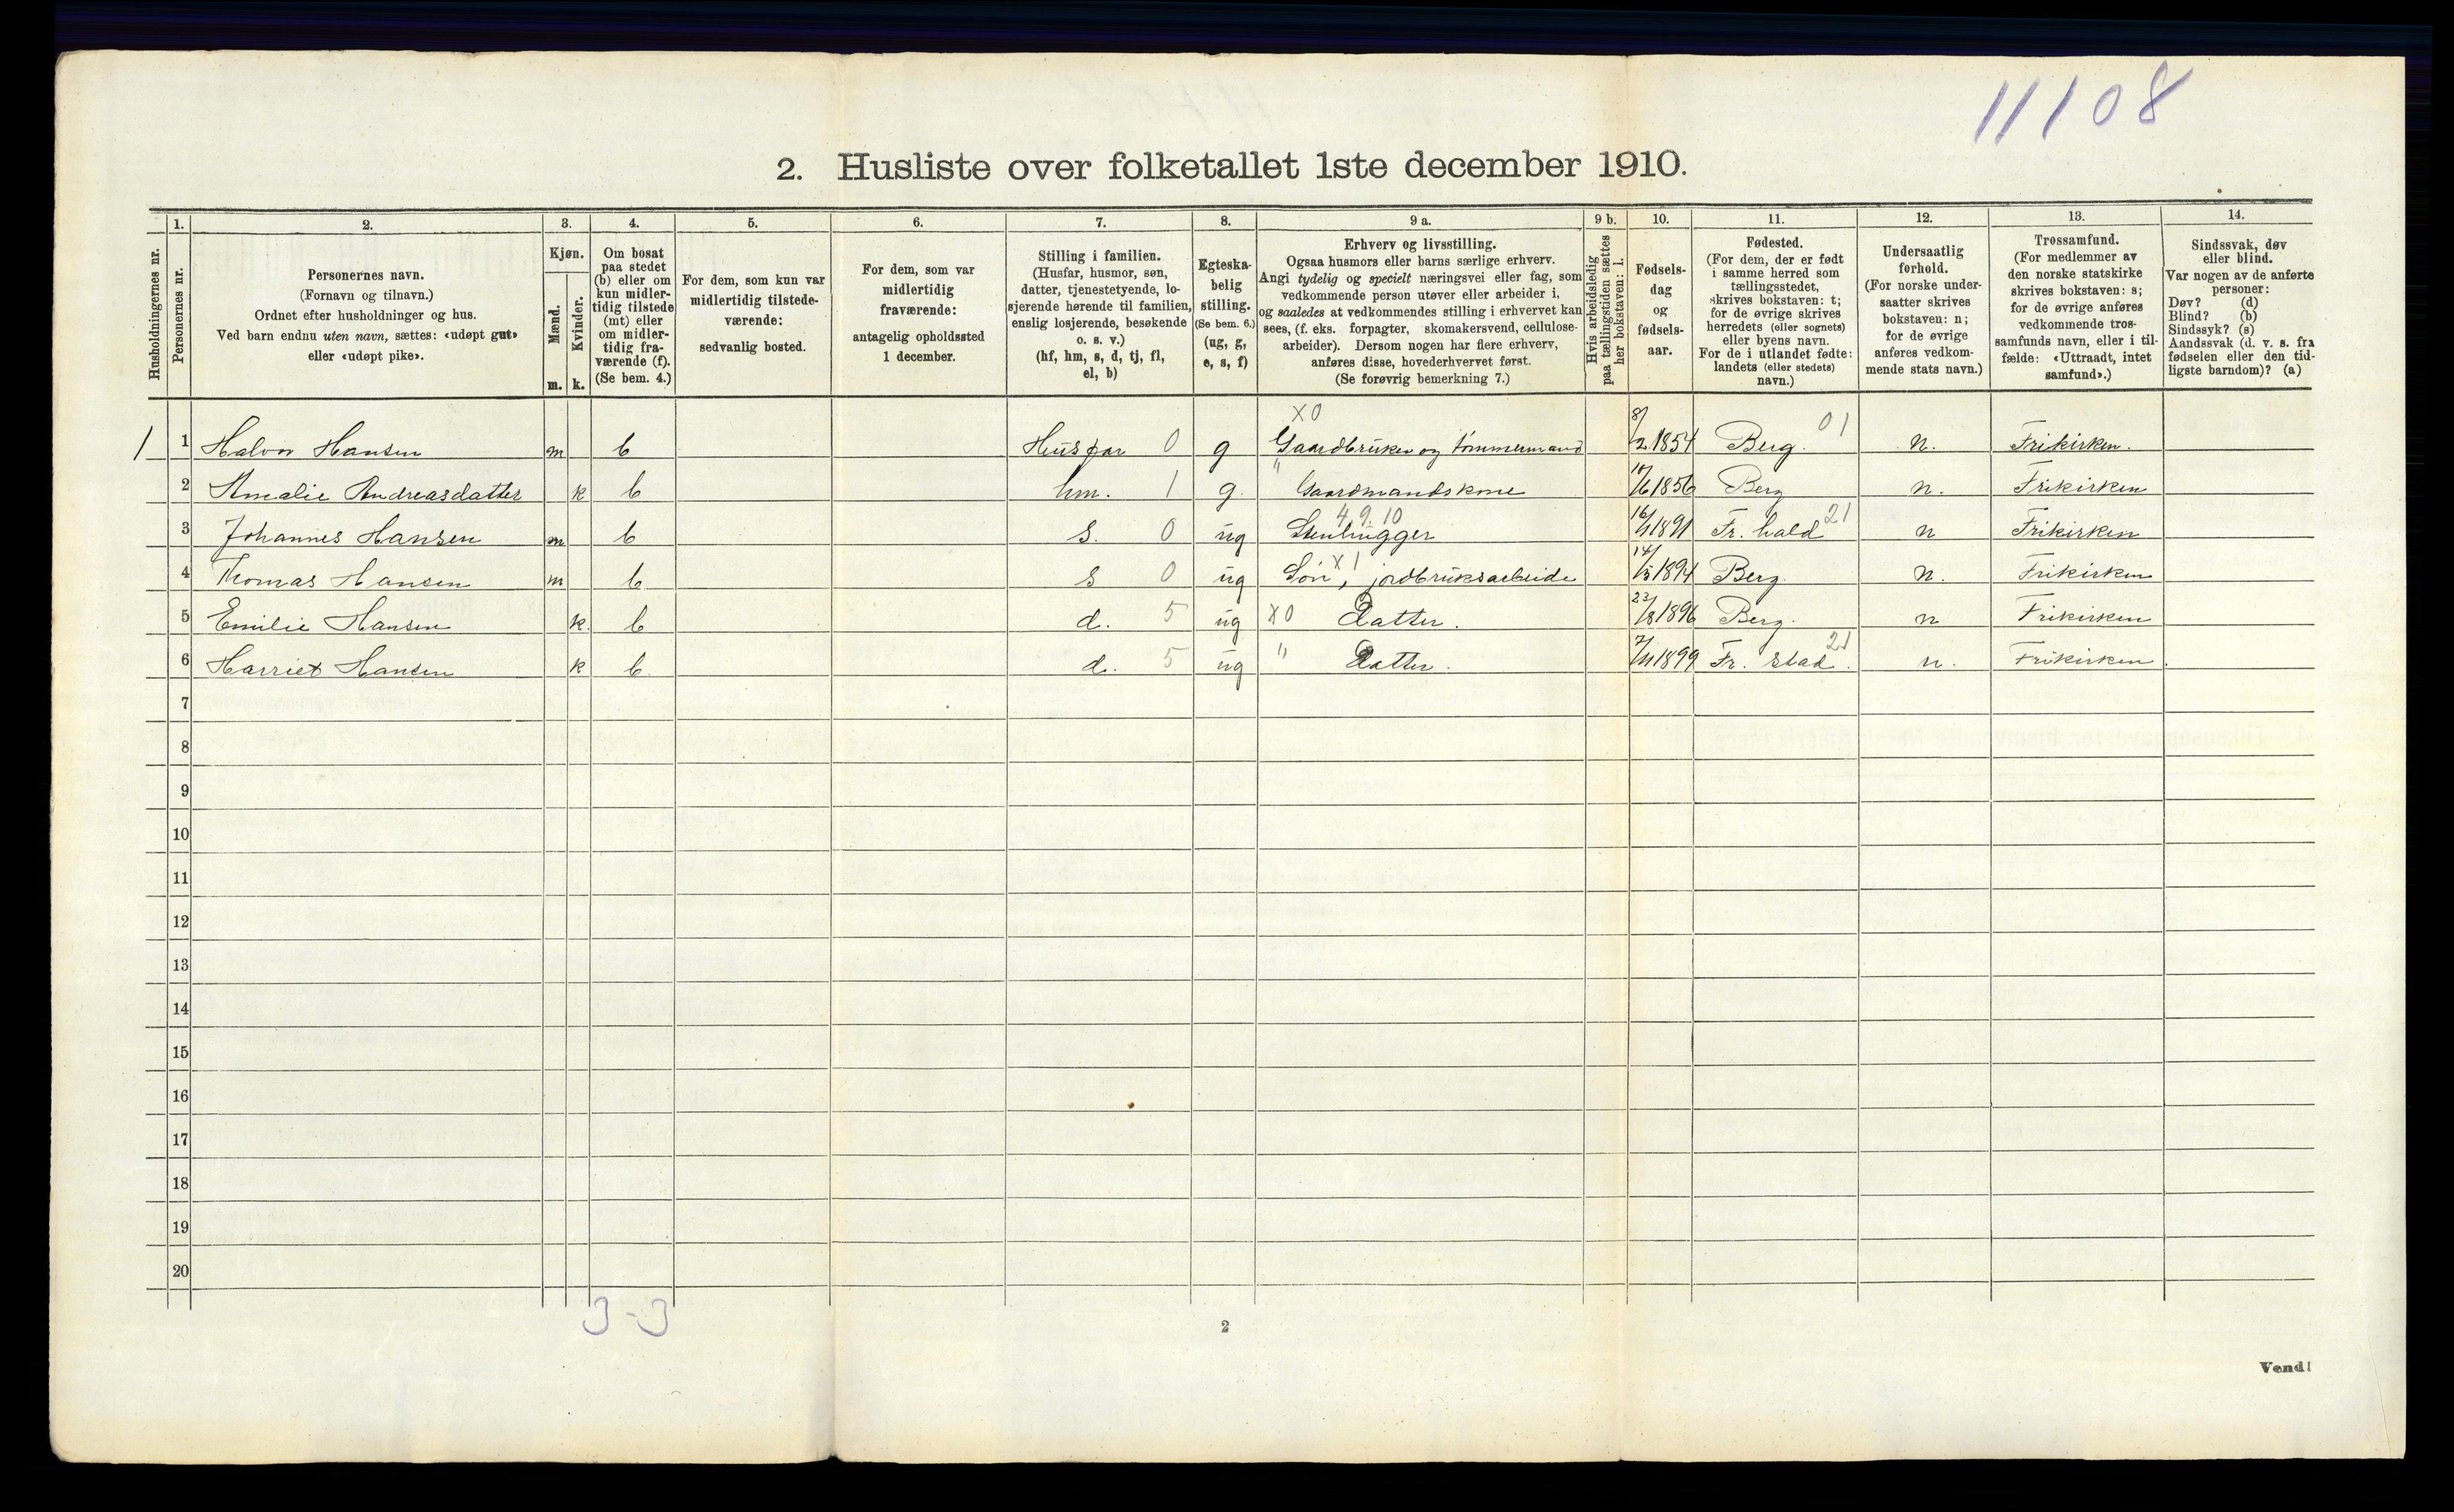 11108
2. Husliste over folketallet 1ste december 1910.
Husholdningernes nr.
1.
Personernes nr.
2.
Personernes navn.
(Fornavn og tilnavn.)
Ordnet efter husholdninger og hus.
Ved barn endnu uten navn, sættes: «udøpt gut»
eller «udøpt pike».
3.
Kjøn.
Mænd.
Kvinder.
m. k.
4.
Om bosat
paa stedet
(b) eller om
kun midler-
tidig tilstede
(mt) eller
om midler-
tidig fra-
værende (f).
(Se bem. 4.)
5.
For dem, som kun var
midlertidig tilstede-
værende:
sedvanlig bosted.
6.
For dem, som var
midlertidig
fraværende:
antagelig opholdssted
1 december.
7.
Stilling i familien.
(Husfar, husmor, søn,
datter, tjenestetyende, lo-
sjerende hørende til familien,
enslig losjerende, besøkende
o. s. v.)
(hf, hm, s, d, tj, fl,
el, b)
8.
Egteska-
belig
stilling.
(Se bem. 6.)
(ug, g,
e, s, f)
9 a.
Erhverv og livsstilling.
Ogsaa husmors eller barns særlige erhverv.
Angi tydelig og specielt næringsvei eller fag, som
vedkommende person utøver eller arbeider i,
og saaledes at vedkommendes stilling i erhvervet kan
sees, (f. eks. forpagter, skomakersvend, cellulose-
arbeider). Dersom nogen har flere erhverv,
anføres disse, hovederhvervet først.
(Se forøvrig bemerkning 7.)
9 b.
Hvis arbeidsledig
paa tællingstiden sættes
her bokstaven: l.
10.
Fødsels-
dag
og
fødsels-
aar.
11.
Fødested.
(For dem, der er født
i samme herred som
tællingsstedet,
skrives bokstaven: t;
for de øvrige skrives
herredets (eller sognets)
eller byens navn.
For de i utlandet fødte:
landets (eller stedets)
navn.)
12.
Undersaatlig
forhold.
(For norske under-
saatter skrives
bokstaven: n;
for de øvrige
anføres vedkom-
mende stats navn.)
13.
Trossamfund.
(For medlemmer av
den norske statskirke
skrives bokstaven: s;
for de øvrige anføres
vedkommende tros-
samfunds navn, eller i til-
fælde: «Uttraadt, intet
samfund».)
14.
Sindssvak, døv
eller blind.
Var nogen av de anførte
personer:
Døv? (d)
Blind? (b)
Sindssyk? (s)
Aandssvak (d. v. s. fra
fødselen eller den tid-
ligste barndom)? (a)
1 1 Halvor Hansen m b Husfar 0 g X0 Gaardbruker og tømmermand 8/2 1854 Berg. 01 n. Frikirken.
2 Amalie Andreasdatter k b hm. 1 g. " Gaardmandskone 1856 Berg n. Frikirken
3 Johannes Hansen m b s. 0 ug 4 9. 10 Stenhugger 16/11 1891 Fr. hald 21 n Frikirken
4 Thomas Hansen m b s 0 ug X1 Søn, jordbruksarbeide 1894 Berg. n. Frikirken
5 Emilie Hansen k. b d. 5 ug X0 Datter. 23/8 1896 Berg. n Frikirken
6 Harriet Hansen k b. d. 5 ug " Datter. 7/11 1899 Fr. stad. 21 n. Frikirken.
7
8
9
10
11
12
13
14
15
16
17
18
19
20
3-3
2
Vend!